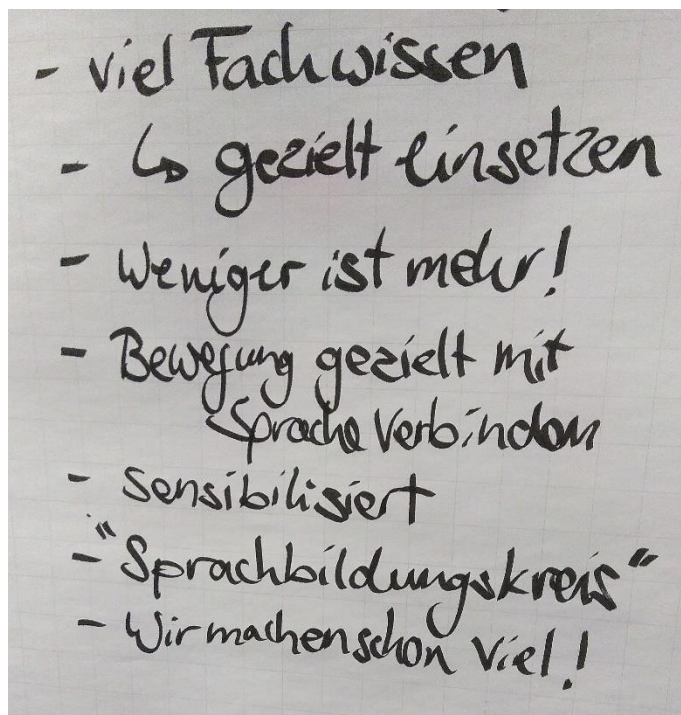 - viel Fachwissen
- ↳ gezielt einsetzen
- Weniger ist mehr!
- Bewegung gezielt mit
Sprache verbinden
- sensibilisiert
- "Sprachbildungskreis"
- Wir machen schon viel!